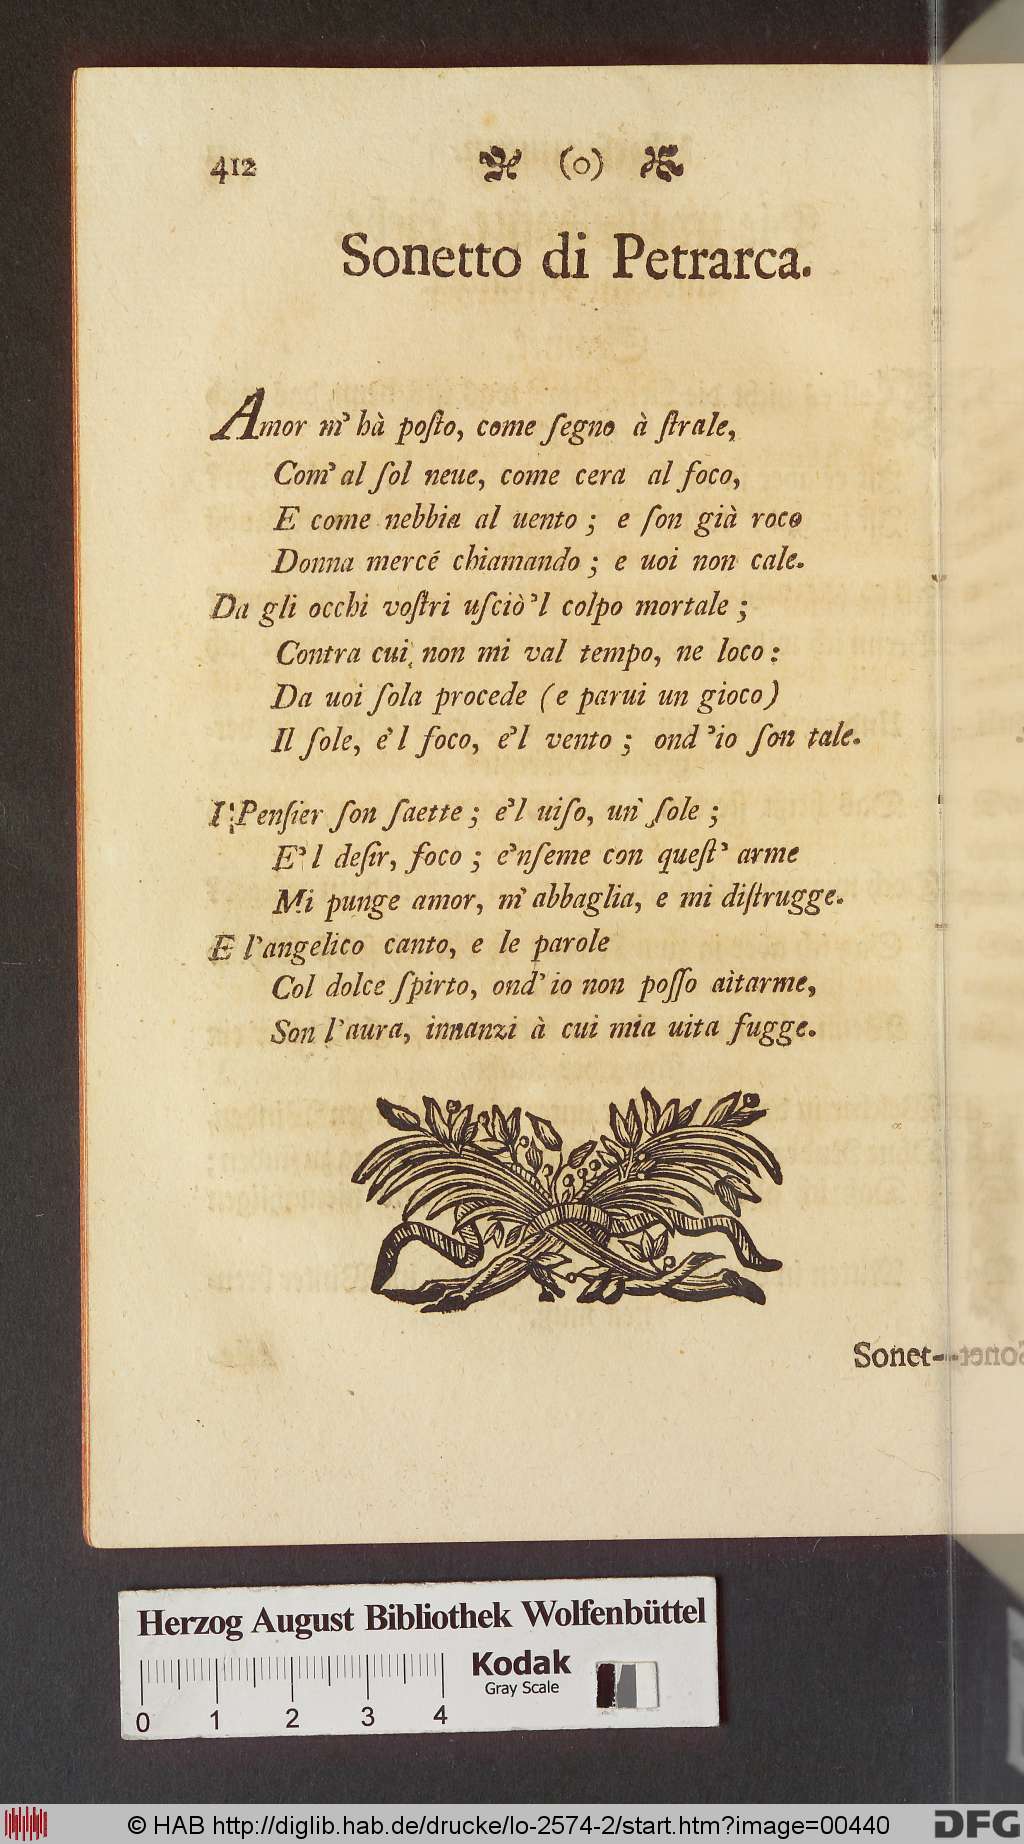 412 (o)
Sonetto di Petrarca.
Amor m' hà poſto, come ſegno à ſtrale,
Com' al ſol neue, come cera al foco,
E come nebbia al uento; e ſon già roco
Donna mercé chiamando; e uoi non cale.
Da gli occhi voſtri uſciò'l colpo mortale;
Contra cui non mi val tempo, ne loco:
Da uoi ſola procede (e parui un gioco)
Il ſole, e'l foco, e'l vento; ond'io ſon tale.
I' Penſier ſon ſaette; e'l uiſo, un ſole;
E'l deſir, foco; e'nſeme con queſt' arme
Mi punge amor, m' abbaglia, e mi diſtrugge.
E l'angelico canto, e le parole
Col dolce ſpirto, ond' io non poſſo aitarme,
Son l'aura, innanzi à cui mia uita fugge.
Sonet-
Herzog August Bibliothek Wolfenbüttel
Kodak
Gray Scale
0 1 2 3 4
© HAB http://diglib.hab.de/drucke/lo-2574-2/start.htm?image=00440
DFG